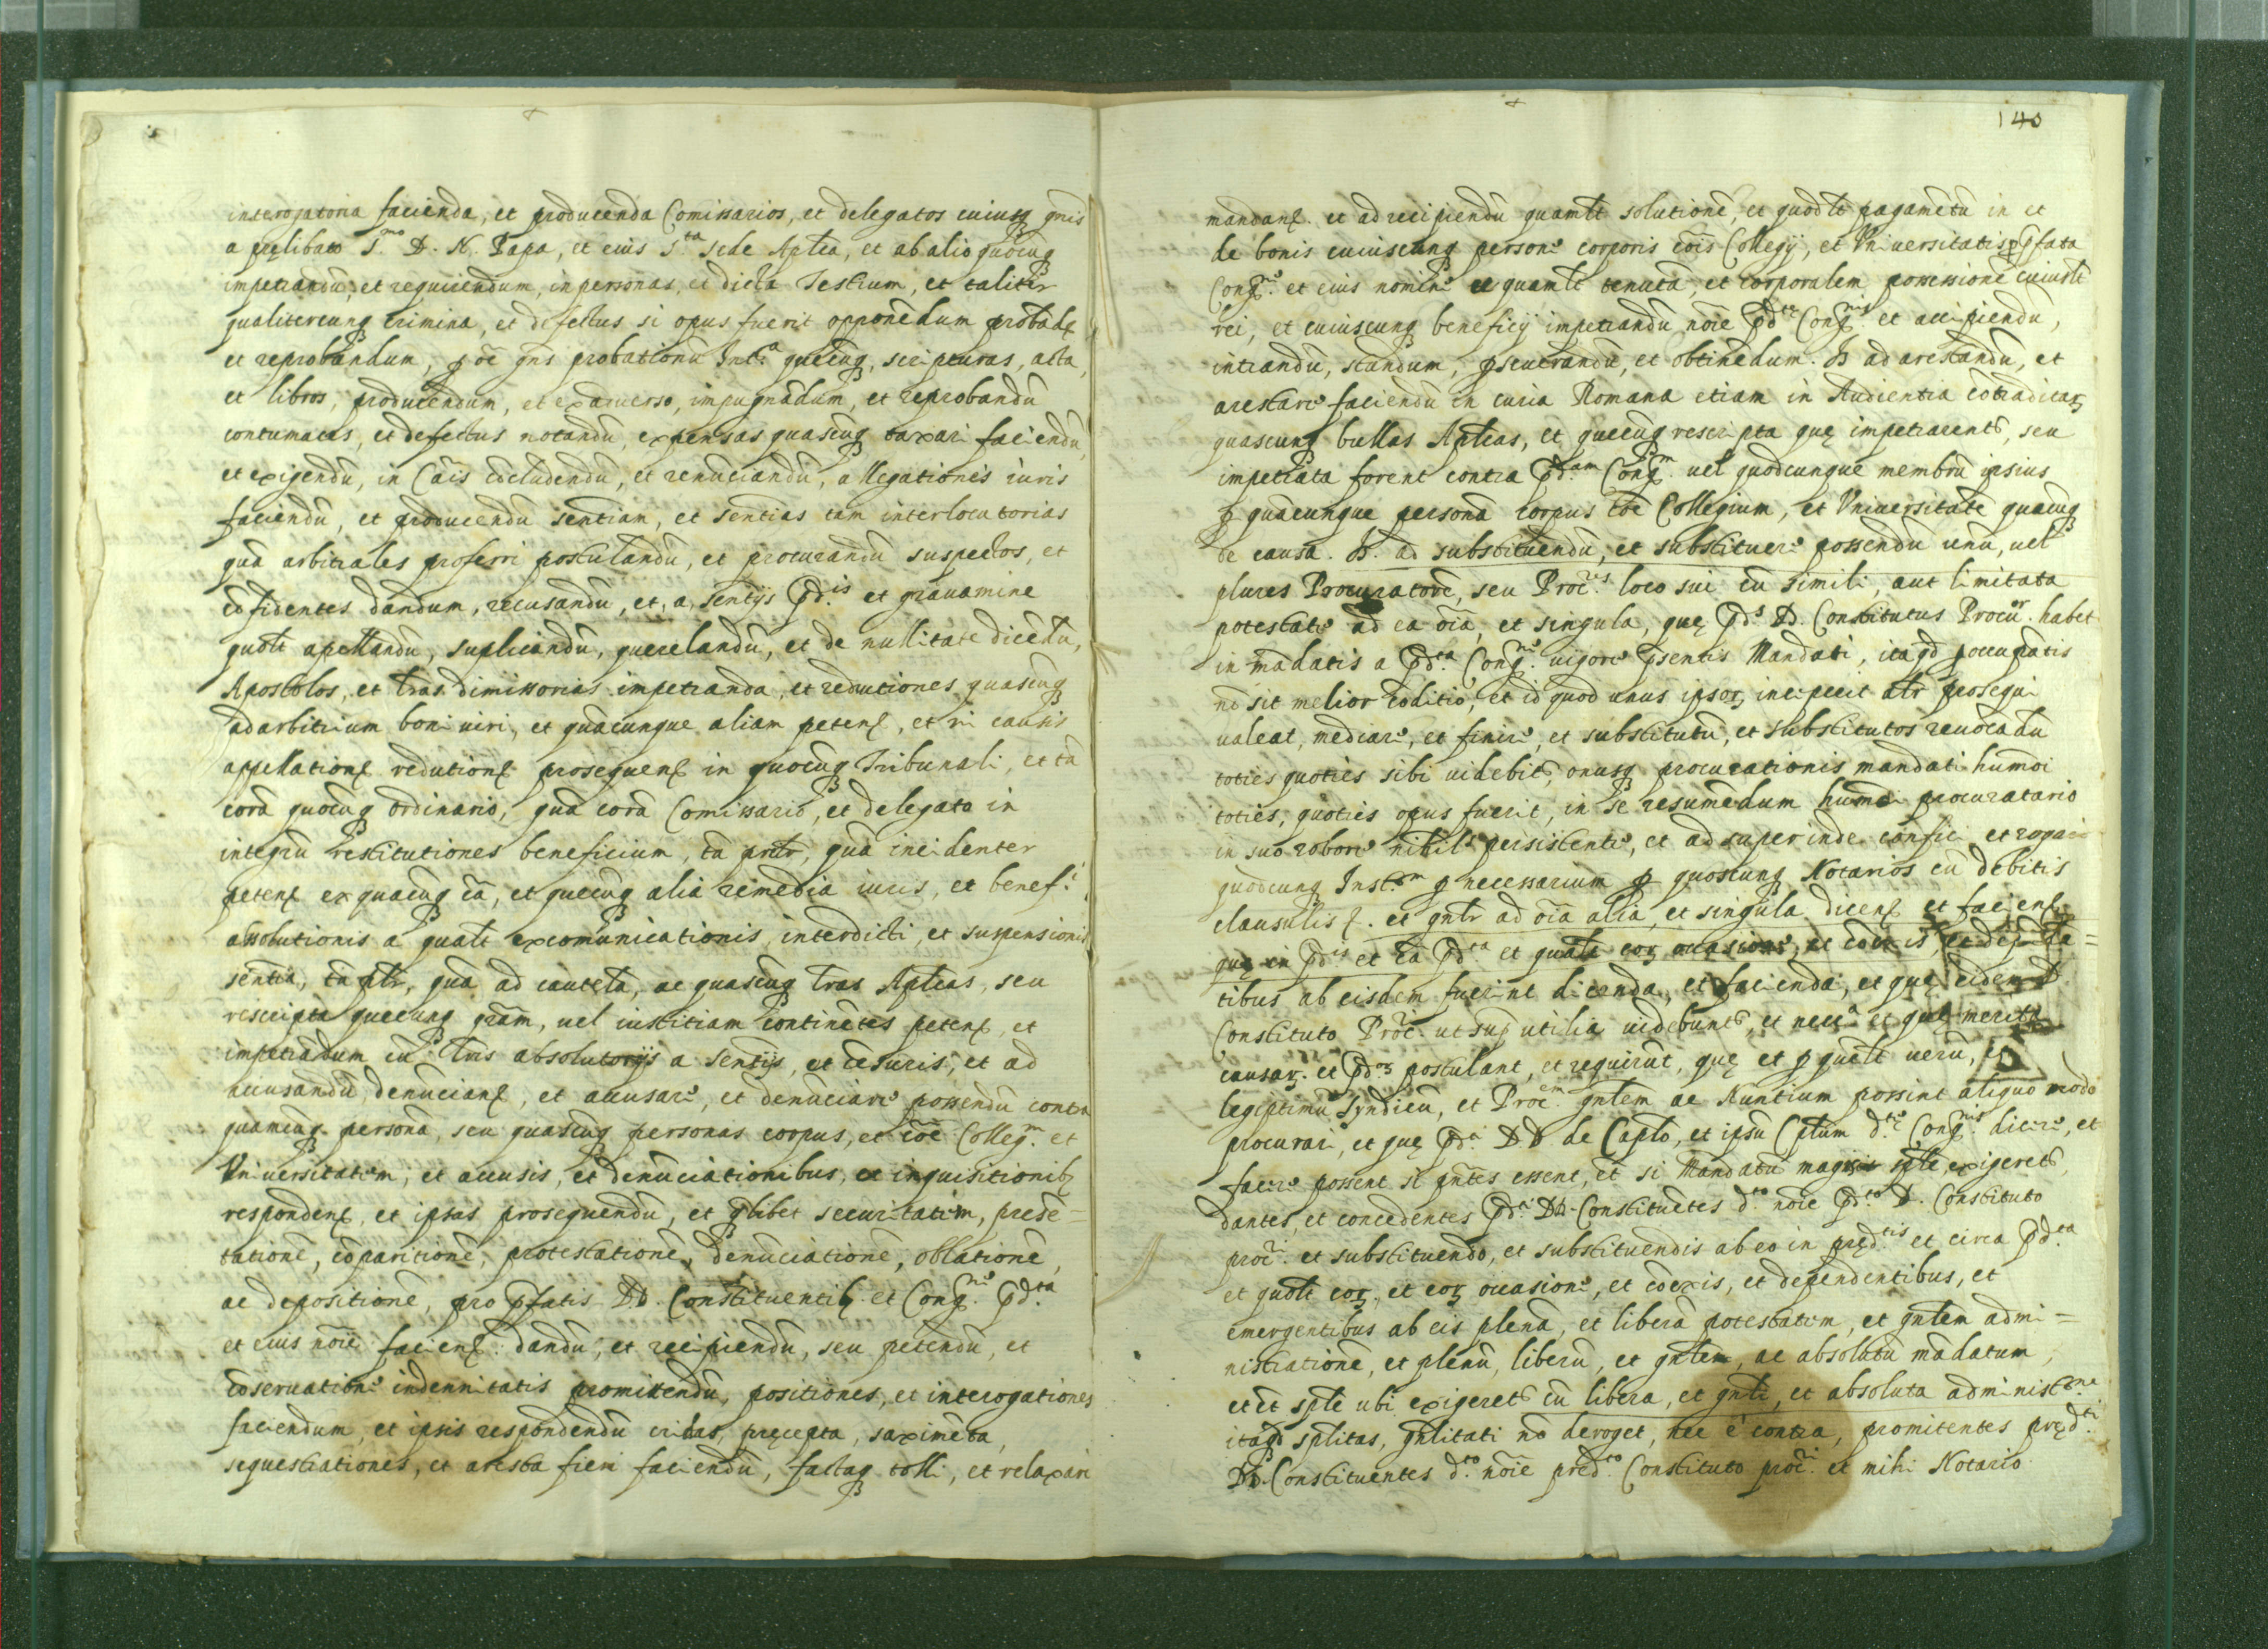 interogatoria facienda, et producenda Comissarios, et delegatos cuiusq gnis
a pręlibato S.mo D. N. Papa, et eius S.ta sede Aplica, et ab alio quocūq
impetrandū, et requirendum, in personas, et dicta Testium, et taliter
qualitercunq crimina, et defectus si opus fuerit opponēdum probādƺ
et reprobandum, p oē gns probationū Inst.a quęcūq, scripturas, acta,
et libros, producēdum, et ex aduerso, impugnādum, et reprobandū
contumatias, et defectus notandū, expensas quascūq taxari faciendū
et exigendū, in Cāis cōcludendū, et renūciandū, allegationes iuris
faciendū, et producendū sentiam, et sentias tam interlocutorias
quā arbitrales proferri postulandū, et procurandū suspectos, et
cōfidentes dandum, recusandū, et, a, sentijs pd.is et grauamine
quolt apellandū, suplicandū, querelandū, et de nullitate dicēdū,
Apostolos, et lras dimissorias impetranda, et reductiones quascūq
ad arbitrium boni uiri, et quācunque aliam petenƺ, et in causis
appellationƺ reductionƺ prosequenƺ in quocūq Tribunali, et tā
corā quocūq ordinario, quā corā Comissario, et delegato in
integrū restitutiones beneficium, tā pntr, quā incidenter
petenƺ ex quacūq cā, et quęcūq alia remedia iuris, et benef.i
absolutionis a qualt excomunicationis, interdicti, et suspensionis
sentia, tā plr, quā ad cautelā, ac quascūq lras Aplicas, seu
rescripta quęcunq grām, uel iustitiam continētes petenƺ, et
impetrādum cū lris absolutorijs a sentijs, et cēsuris, et ad
accusandū denūcianƺ, et accusare, et denūciare possendū contra
quamcūq personā, seu quascūq personas corpus, et cōē Colleg.m et
Vniuersitatem, et accusis, et denūciationibus, et inquisitionibƺ
respondenƺ, et ipsas prosequendū, et qlibet securitatem, presē=
tationē, cōparitionē, protestationē, denūciationē, oblationē,
ac depositionē, pro pfatis DD. Constituentibƺ et Cong.ne pd.ta
et eius nōie facienƺ dandū, et recipiendū, seu petendū, et
cōseruatione indennitatis promittendū, positiones, et interogationes
faciendum, et ipsis respondendū cridas, pręcepta, saximēta,
sequestrationes, et aresta fieri faciendū, factaq tolli, et relaxari
140
mandanƺ. et ad recipiendū quamlt solutionē, et quodlt pagamētū in et
de bonis cuiuscunq persone corporis cōis Collegij, et Vniuersitatis p pfata
Cong.ne et eius nomine et quamlt tenutā, et corporalem possessionē cuiuslt
rei, et cuiuscunq beneficij impetrandū nōie pd.te Cong.nis et accipiendū,
intrandū, standum, pseuerandū, et obtinēdum. It ad arestandū, et
arestare faciendū in curia Romana etiam in Audientia cōtradictaƺ
quascunq bullas Aplicas, et quęcūq rescripta quę impetrarent, seu
impetrata forent contra pd.am Cong.m uel quodcunque membrū ipsius
p quācunque personā corpus cōē Collegium, et Vniuersitatē quacūq
de causa. It. ad substituendū, et substituere possendū unū, uel
plures Procuratorē, seu Proc.res loco sui cū simili, aut limitata
potestate ad ea oīa, et singula, quę pd.s D. Constitutus Procur.or habet
in mādatis a pd.ta Cong.ne uigore psentis Mandati, itaqd p occupātis
nō sit melior cōditio, et id quod unus ipsoƺ inceperit altr prosequi
ualeat, mediare, et finire, et substitutū, et substitutos reuocādū
toties quoties sibi uidebit, onusq procurationis mandati humoi
toties, quoties opus fuerit, in se resumēdum humoi procuratario
in suo robore nihile persistente, et ad super inde confici et rogari
quodcunq Inst.m p necessarium p quoscunq Notarios cū debitis
clausulis ƺ. et gnlr ad oīa alia, et singula dicenƺ et facienƺ
quę in pd.is et cā pd.ta et qualt eoƺ occasione, et cōexis, et depēdē=
tibus ab eisdem fuerint dicenda, et facienda, et quę eidem D.
Constituto Proc. ut sup utilia uidebunt, et necc.a et quę merita
causaƺ et pd.oƺ postulant, et requirūt, quę et p quēlt uerū, et
legiptimū Syndicū, et Proc.em gnlem ac Nuntium possint aliquo modo
procurari, et quę pd.i DD. de Caplo, et ipsū Cplum d.te Cong.nis dicere, et
facere possent si pntes essent, et si Mandatū magis sple exigeret,
dantes, et concedentes pd.i DD. Constituētes d.to nōie pd.to D. Constituto
proc.i et substituendo, et substituendis ab eo in pręd.tis et circa pd.ta
et quolt eoƺ, et eoƺ occasione, et cōexis, et dependentibus, et
emergentibus ab eis plenā, et liberā potestatem, et gnlem admi=
nistrationē, et plenū, liberū, et gnlem, ac absolutū mādatum,
et ēt sple ubi exigeret cū libera, et gnli, et absoluta administ.one
itaqd splitas, gnlitati nō deroget, nec è contra, promitentes pręd.ti
DD. Constituentes d.to nōie pred.to Constituto proc.i et mihi Notario